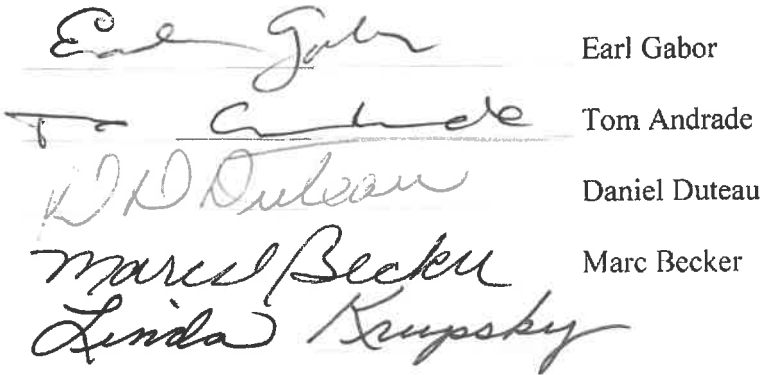 Earl Gabor Earl Gabor
Tom Andrade Tom Andrade
D D Duteau Daniel Duteau
Marc S Becker Marc Becker
Linda Krupsky